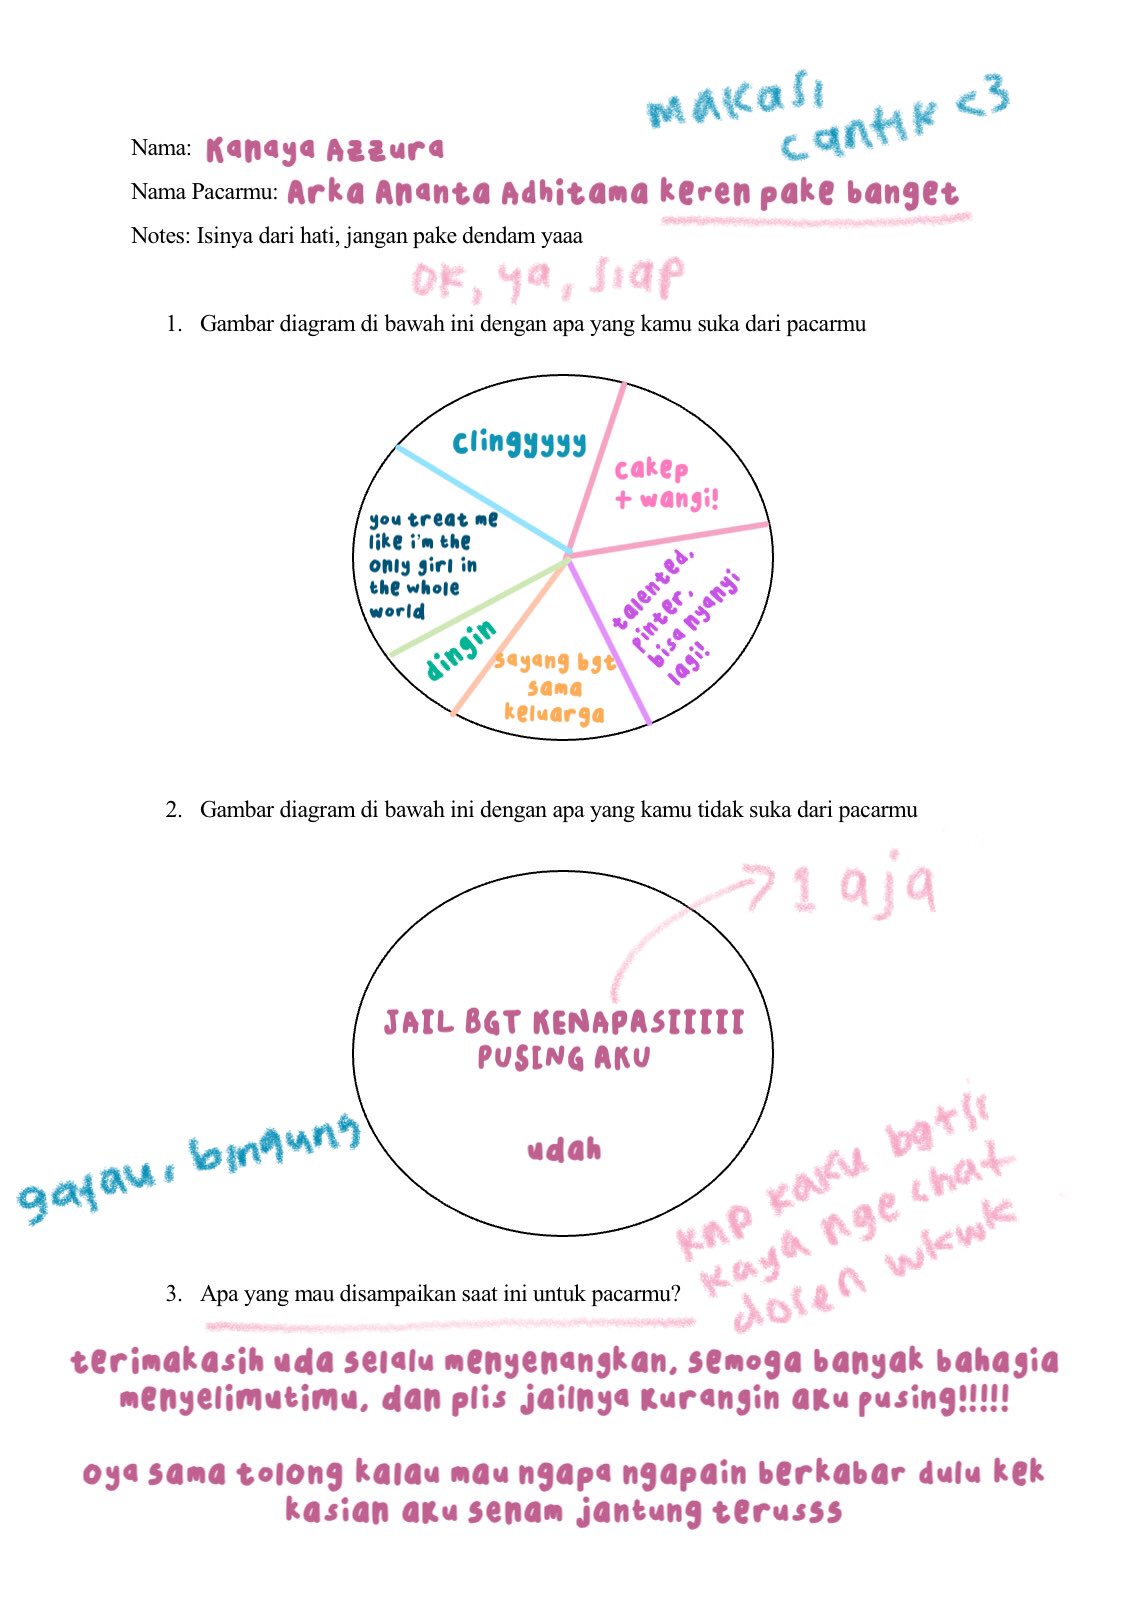 MAKASI
CANTIK <3
Nama: Kanaya Azzura
Nama Pacarmu: Arka Ananta Adhitama keren pake banget
Notes: Isinya dari hati, jangan pake dendam yaaa
OK, ya, SIAP
1. Gambar diagram di bawah ini dengan apa yang kamu suka dari pacarmu
clingyyyy
cakep
+ wangi!
you treat me
like i'm the
only girl in
the whole
world
talented,
pinter,
bisa nyanyi
lagi!
dingin
sayang bgt
sama
keluarga
2. Gambar diagram di bawah ini dengan apa yang kamu tidak suka dari pacarmu
1 aja
JAIL BGT KENAPASIIIII
PUSING AKU
udah
gatau, bingung
knp kaku bgtsi
kaya nge chat
dosen wkwk
3. Apa yang mau disampaikan saat ini untuk pacarmu?
terimakasih uda selalu menyenangkan, semoga banyak bahagia
menyelimutimu, dan plis jailnya kurangin aku pusing!!!!!
oya sama tolong kalau mau ngapa ngapain berkabar dulu kek
kasian aku senam jantung terusss